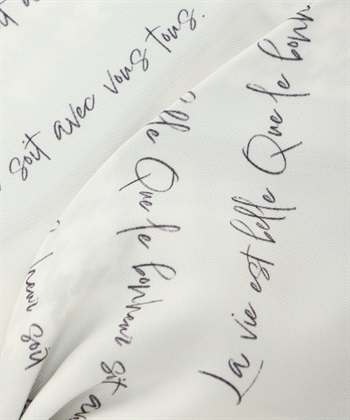 soit avec vous tous.
La vie est belle Que le bonh
elle Que le bonheur soit a
heur soit